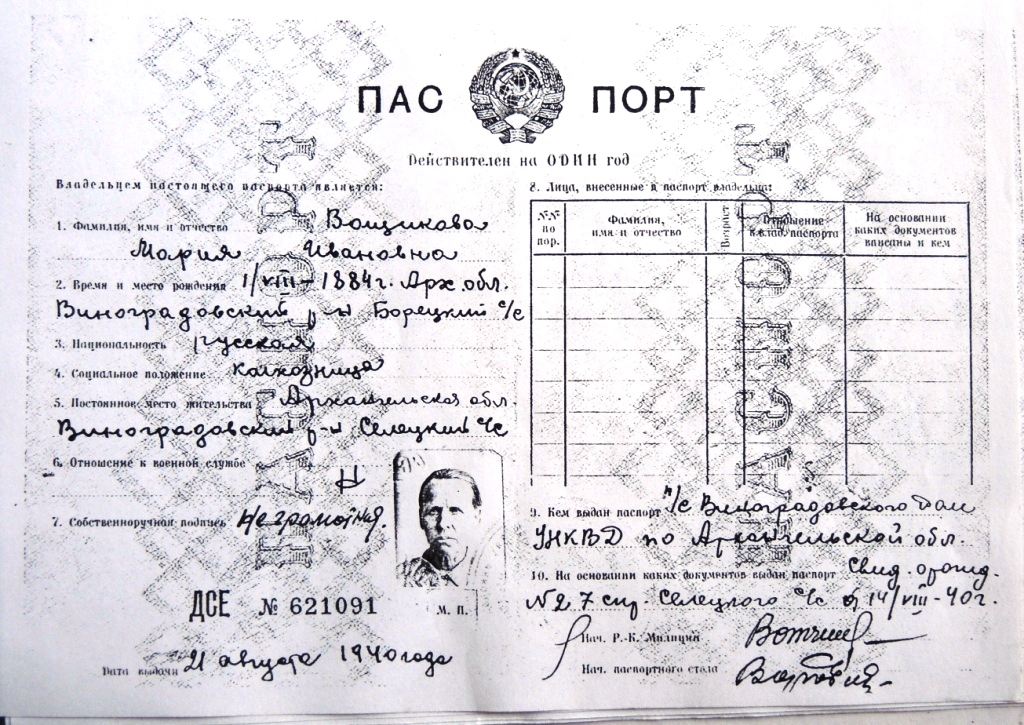 ПАСПОРТ
Действителен на ОДИН год
Владельцем настоящего паспорта является:
1. Фамилия, имя и отчество Вощикова
Мария Ивановна
2. Время и место рождения 1/VIII-1884г. Арх. обл.
Виноградовский р-н Борецкий с/с
3. Национальность русская
4. Социальное положение колхозница
5. Постоянное место жительства Архангельская обл.
Виноградовский р-н Селецкий с/с
6. Отношение к военной службе
Н
7. Собственноручная подпись Неграмотная.
ДСЕ № 621091
М. П.
Дата выдачи 21 августа 1940 года
8. Лица, внесенные в паспорт владельца:
№№ по пор.
Фамилия, имя и отчество
Возраст
Отношение к влад. паспорта
На основании каких документов вписаны и кем
9. Кем выдан паспорт п/с Виноградовского
УНКВД по Архангельской обл.
10. На основании каких документов выдан паспорт Свид. о рожд.
N27 спр. Селецкого с/с от 14/VIII-40г.
Нач. Р.-К. Милиции
Нач. паспортного стола
ПАСПОРТ
ПАСПОРТ